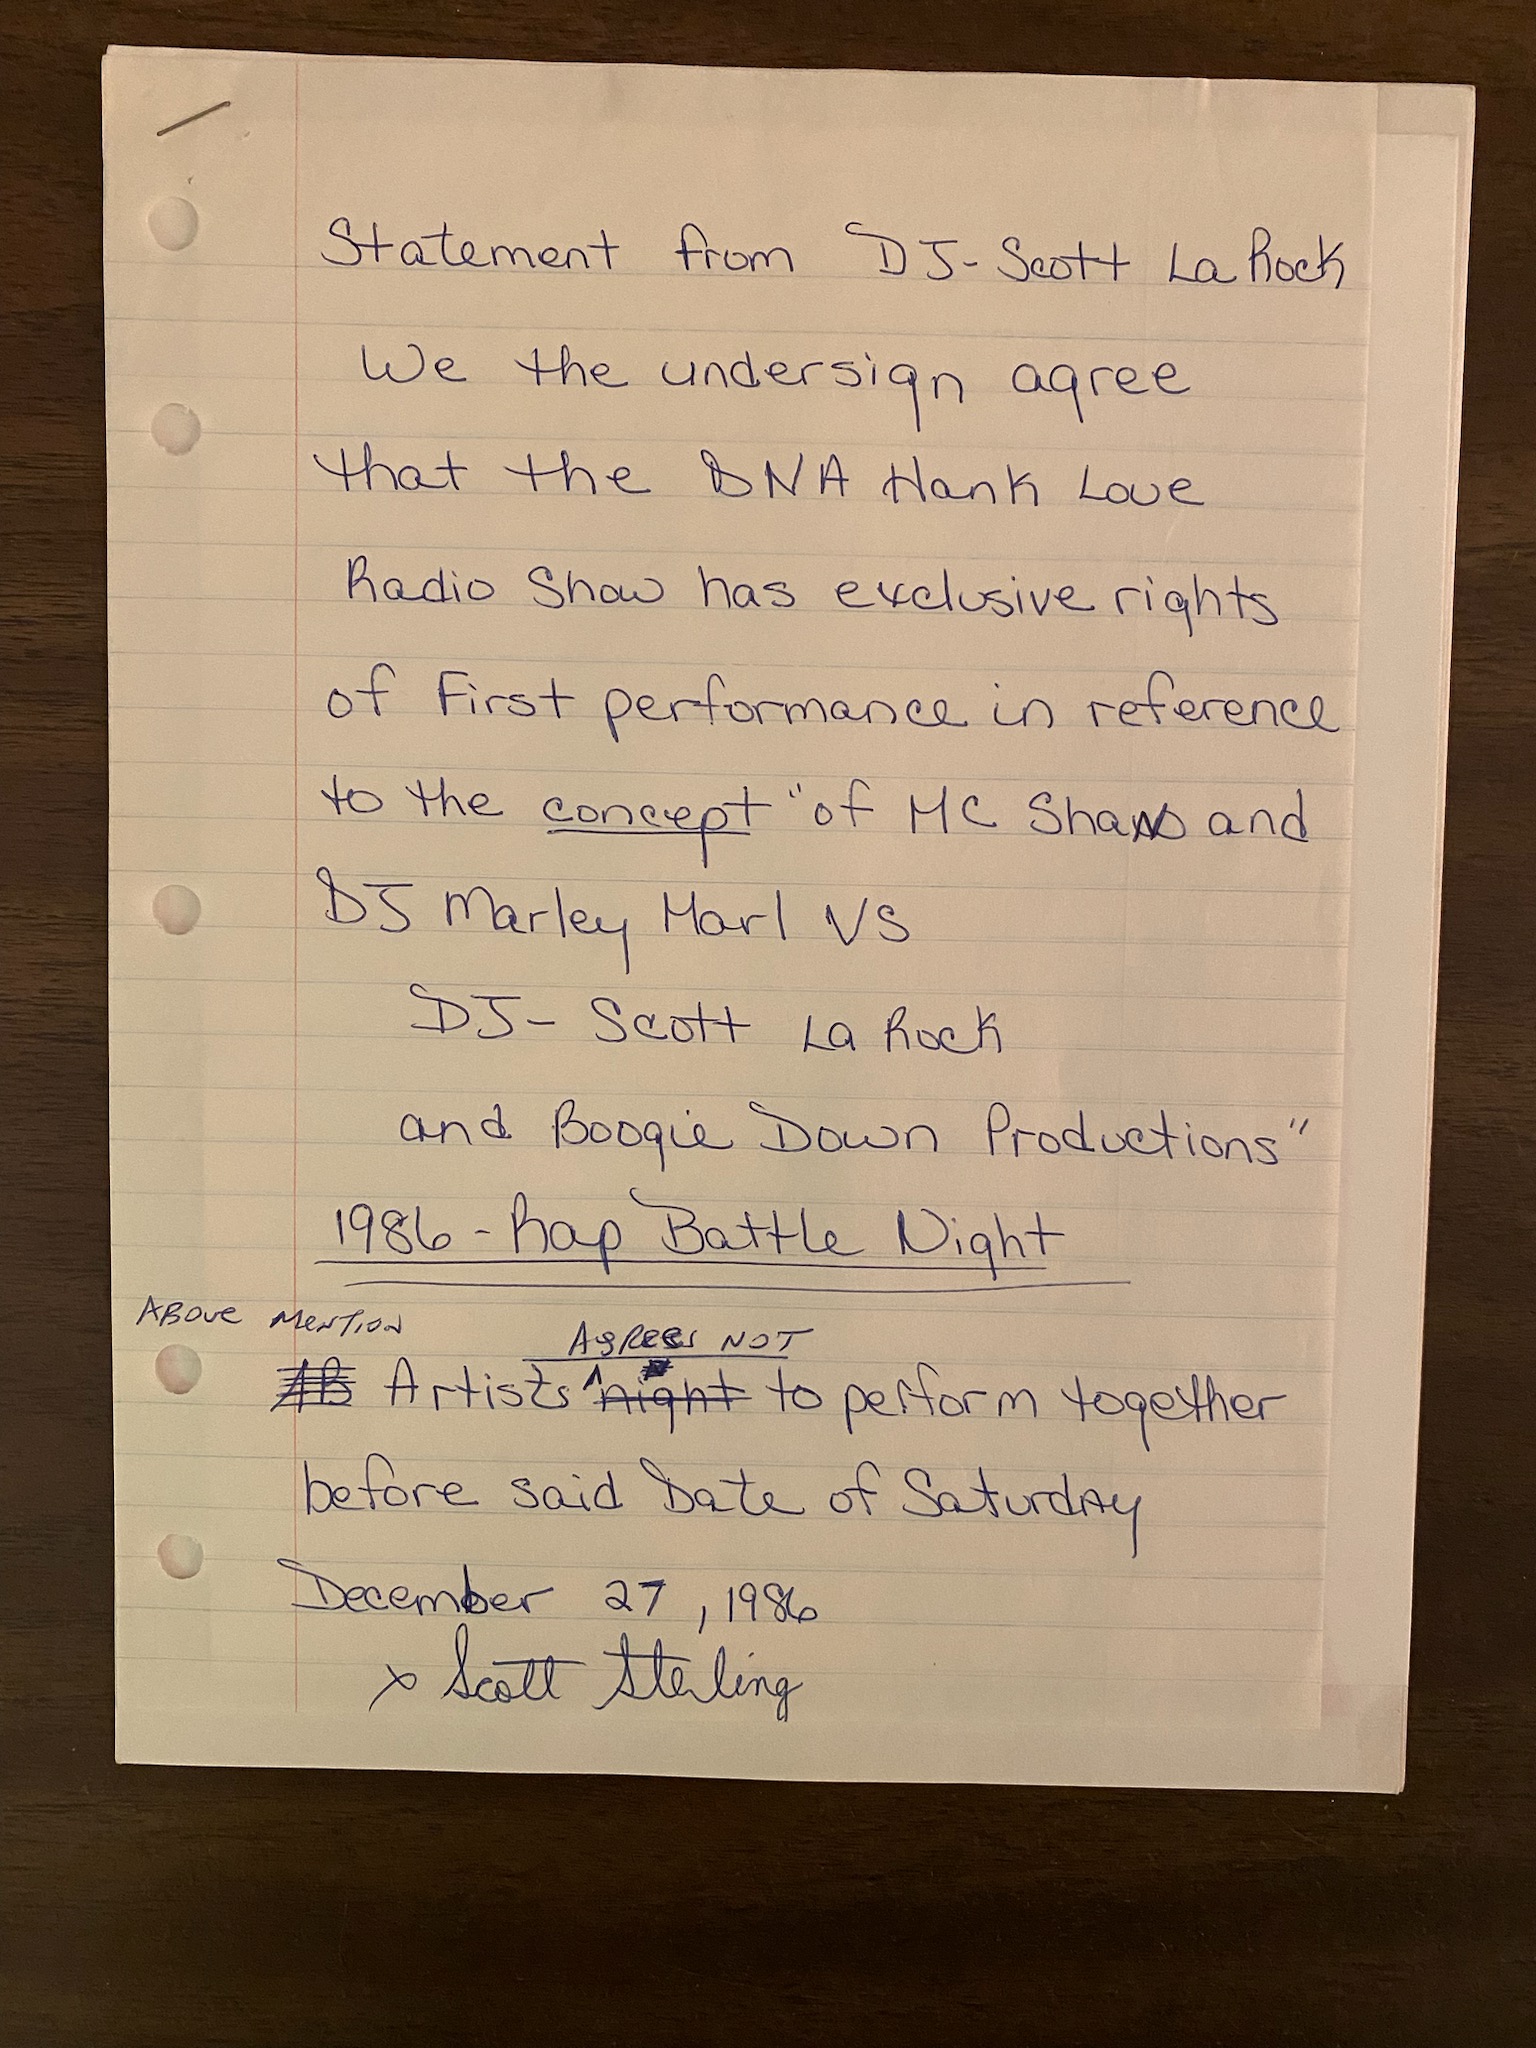 Statement from DJ-Scott La Rock
We the undersign agree
that the DNA Hank Love
Radio Show has exclusive rights
of First performance in reference
to the concept "of MC Shan and
DJ Marley Marl VS
DJ- Scott La Rock
and Boogie Down Productions"
1986 - Rap Battle Night
ABOVE MENTION
AGREES NOT
AB Artists night to perform together
before said Date of Saturday
December 27, 1986
x Scott Sterling